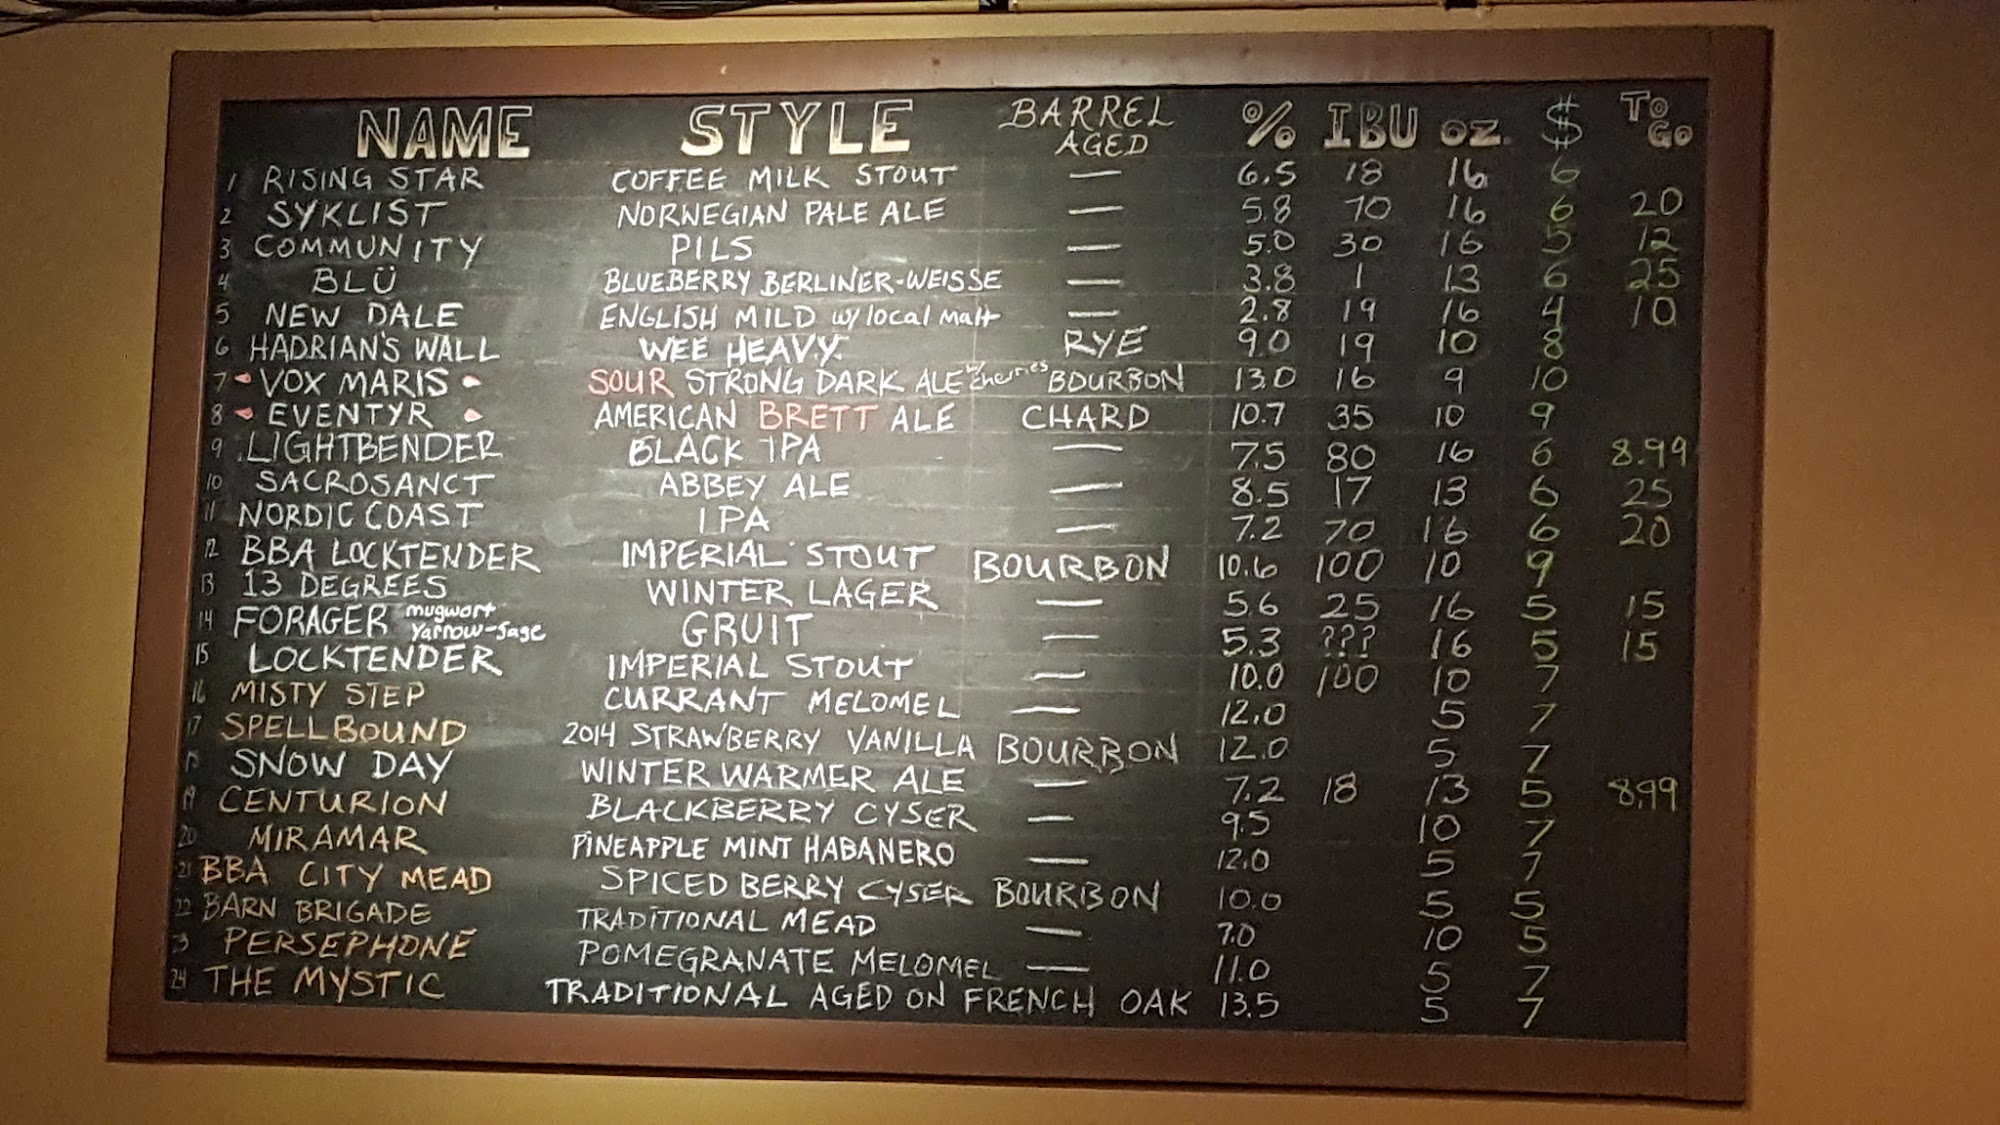 NAME STYLE BARREL AGED % IBU oz. $ TO GO
1 RISING STAR COFFEE MILK STOUT — 6.5 18 16 6
2 SYKLIST NORWEGIAN PALE ALE — 5.8 70 16 6 20
3 COMMUNITY PILS — 5.0 30 16 5 12
4 BLÜ BLUEBERRY BERLINER-WEISSE — 3.8 1 13 6 25
5 NEW DALE ENGLISH MILD w/ local malt — 2.8 19 16 4 10
6 HADRIAN'S WALL WEE HEAVY RYE 9.0 19 10 8
7 VOX MARIS SOUR STRONG DARK ALE w/ cherries BOURBON 13.0 16 9 10
8 EVENTYR AMERICAN BRETT ALE CHARD 10.7 35 10 9
9 LIGHTBENDER BLACK IPA — 7.5 80 16 6 8.99
10 SACROSANCT ABBEY ALE — 8.5 17 13 6 25
11 NORDIC COAST IPA — 7.2 70 16 6 20
12 BBA LOCKTENDER IMPERIAL STOUT BOURBON 10.6 100 10 9
13 13 DEGREES WINTER LAGER — 5.6 25 16 5 15
14 FORAGER mugwort Yarrow-Sage GRUIT — 5.3 ??? 16 5 15
15 LOCKTENDER IMPERIAL STOUT — 10.0 100 10 7
16 MISTY STEP CURRANT MELOMEL — 12.0 5 7
17 SPELLBOUND 2014 STRAWBERRY VANILLA BOURBON 12.0 5 7
18 SNOW DAY WINTER WARMER ALE — 7.2 18 13 5 8.99
19 CENTURION BLACKBERRY CYSER — 9.5 10 7
20 MIRAMAR PINEAPPLE MINT HABANERO — 12.0 5 7
21 BBA CITY MEAD SPICED BERRY CYSER BOURBON 10.0 5 5
22 BARN BRIGADE TRADITIONAL MEAD — 7.0 10 5
23 PERSEPHONE POMEGRANATE MELOMEL — 11.0 5 7
24 THE MYSTIC TRADITIONAL AGED ON FRENCH OAK 13.5 5 7